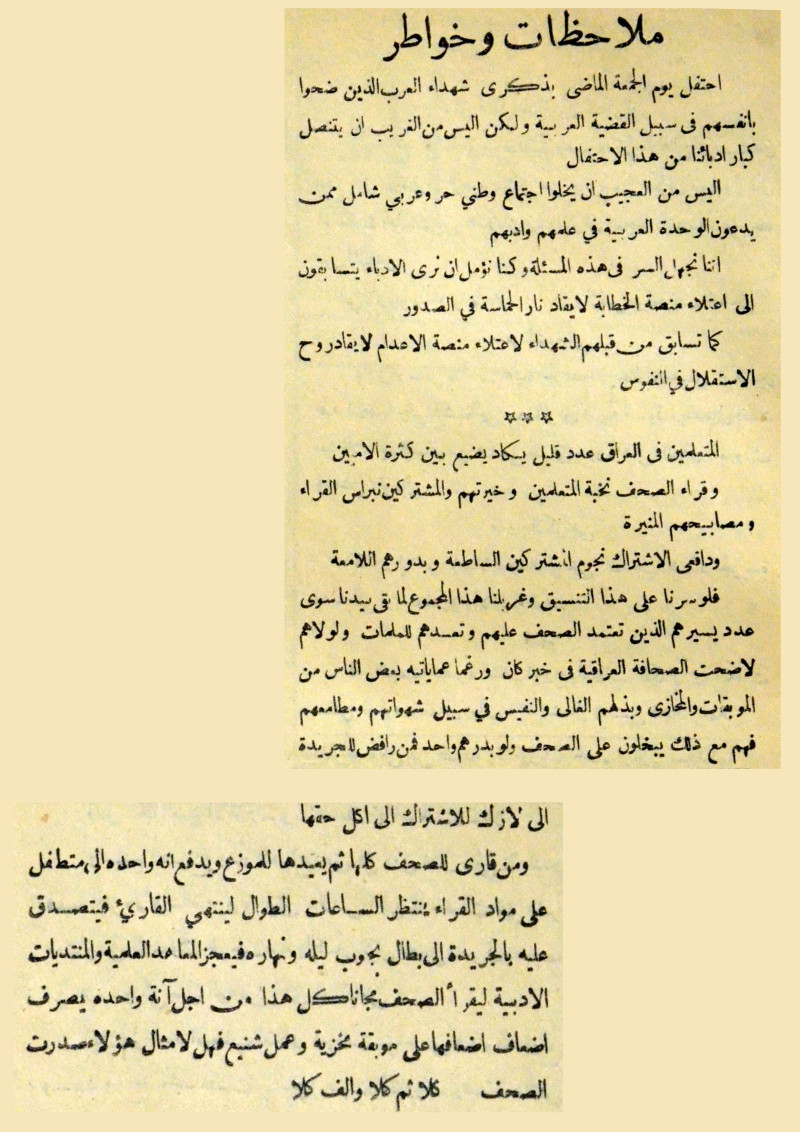 ملاحظات وخواطر
احتفل يوم الجمعة الماضى بذكرى شهداء العرب الذين ضحوا
بانفسهم فى سبيل القضية العربية ولكن اليس من الغريب ان يتنصل
كبار ادبائنا من هذا الاحتفال
اليس من العجيب ان يخلوا اجتماع وطني حر وعربي شامل ممن
يدعون الوحدة العربية في علمهم وادبهم
اننا نجهل السر فى هذه المسئلة وكنا نؤمل ان نرى الادباء يتسابقون
الى اعتلاء منصة الخطابة لايقاد نار الحماسة في الصدور
كما تسابق من قبلهم الشهداء لاعتلاء منصة الاعدام لايقاد روح
الاستقلال في النفوس
☆☆☆
المتعلمين فى العراق عدد قليل يكاد يضيع بين كثرة الاميين
وقراء الصحف نخبة المتعلمين وخيرتهم والمشتركين نبراس القراء
ومصابيحهم المنيرة
ودافعى الاشتراك نجوم المشتركين الساطعة وبدورهم اللامعة
فلو سرنا على هذا التنسيق وغربلنا هذا المجموع لما بقى بيدنا سوى
عدد يسير هم الذين تعتمد الصحف عليهم وتعدهم للملمات ولولاهم
لاضحت الصحافة العراقية فى خبر كان ورغما عما ياتيه بعض الناس من
الموبقات والمخازى وبذلهم الغالى والنفيس في سبيل شهواتهم ومطامعهم
فهم مع ذلك يبخلون على الصحف ولو بدرهم واحد فمن رافض للجريدة
الى لارك للاشتراك الى اكل حقها
ومن قارى للصحف كلها ثم يعيدها للموزع ويدفع انه واحده الى متطفل
على مواد القراء ينتظر الساعات الطوال لينتهي القارئ فيتصدق
عليه بالجريدة الى بطال يجوب ليله ونهاره فيعجز المعاهد العلمية والمنتديات
الادبية ليقرأ الصحف مجانا كل هذا من اجل آنة واحده يصرف
اضعاف اضعافها على موبقة مخزية وعمل شنيع فهل لامثال هؤلاء صدرت
الصحف كلا ثم كلا والف كلا